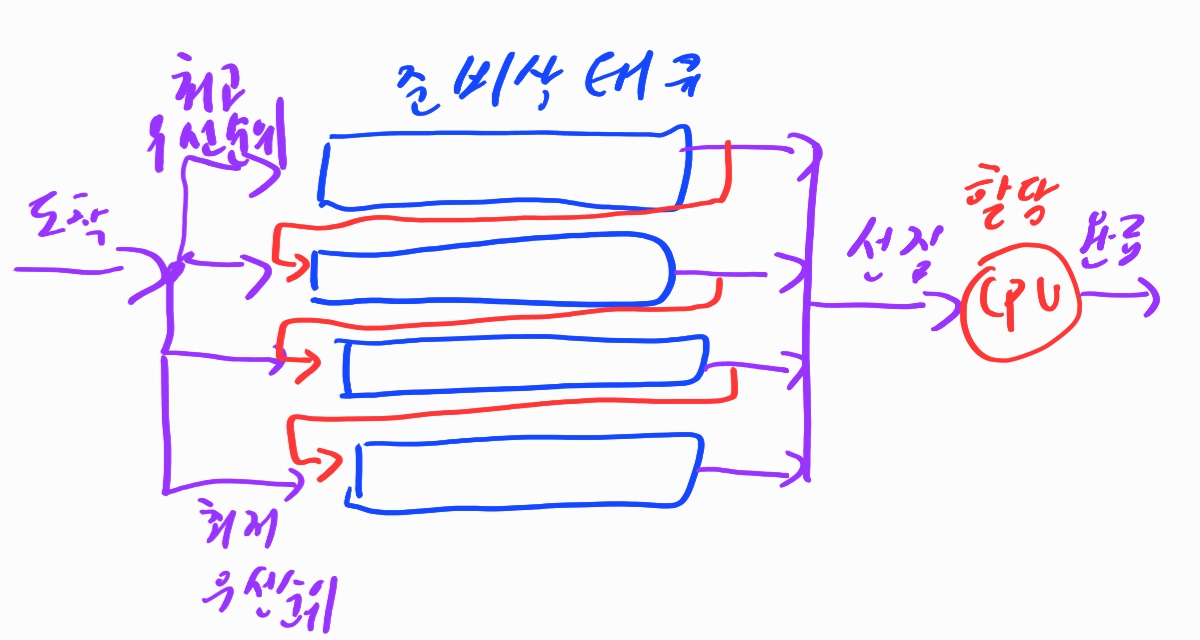 준비상태 큐
최고
우선순위
도착
할당
선점
완료
CPU
최저
우선순위